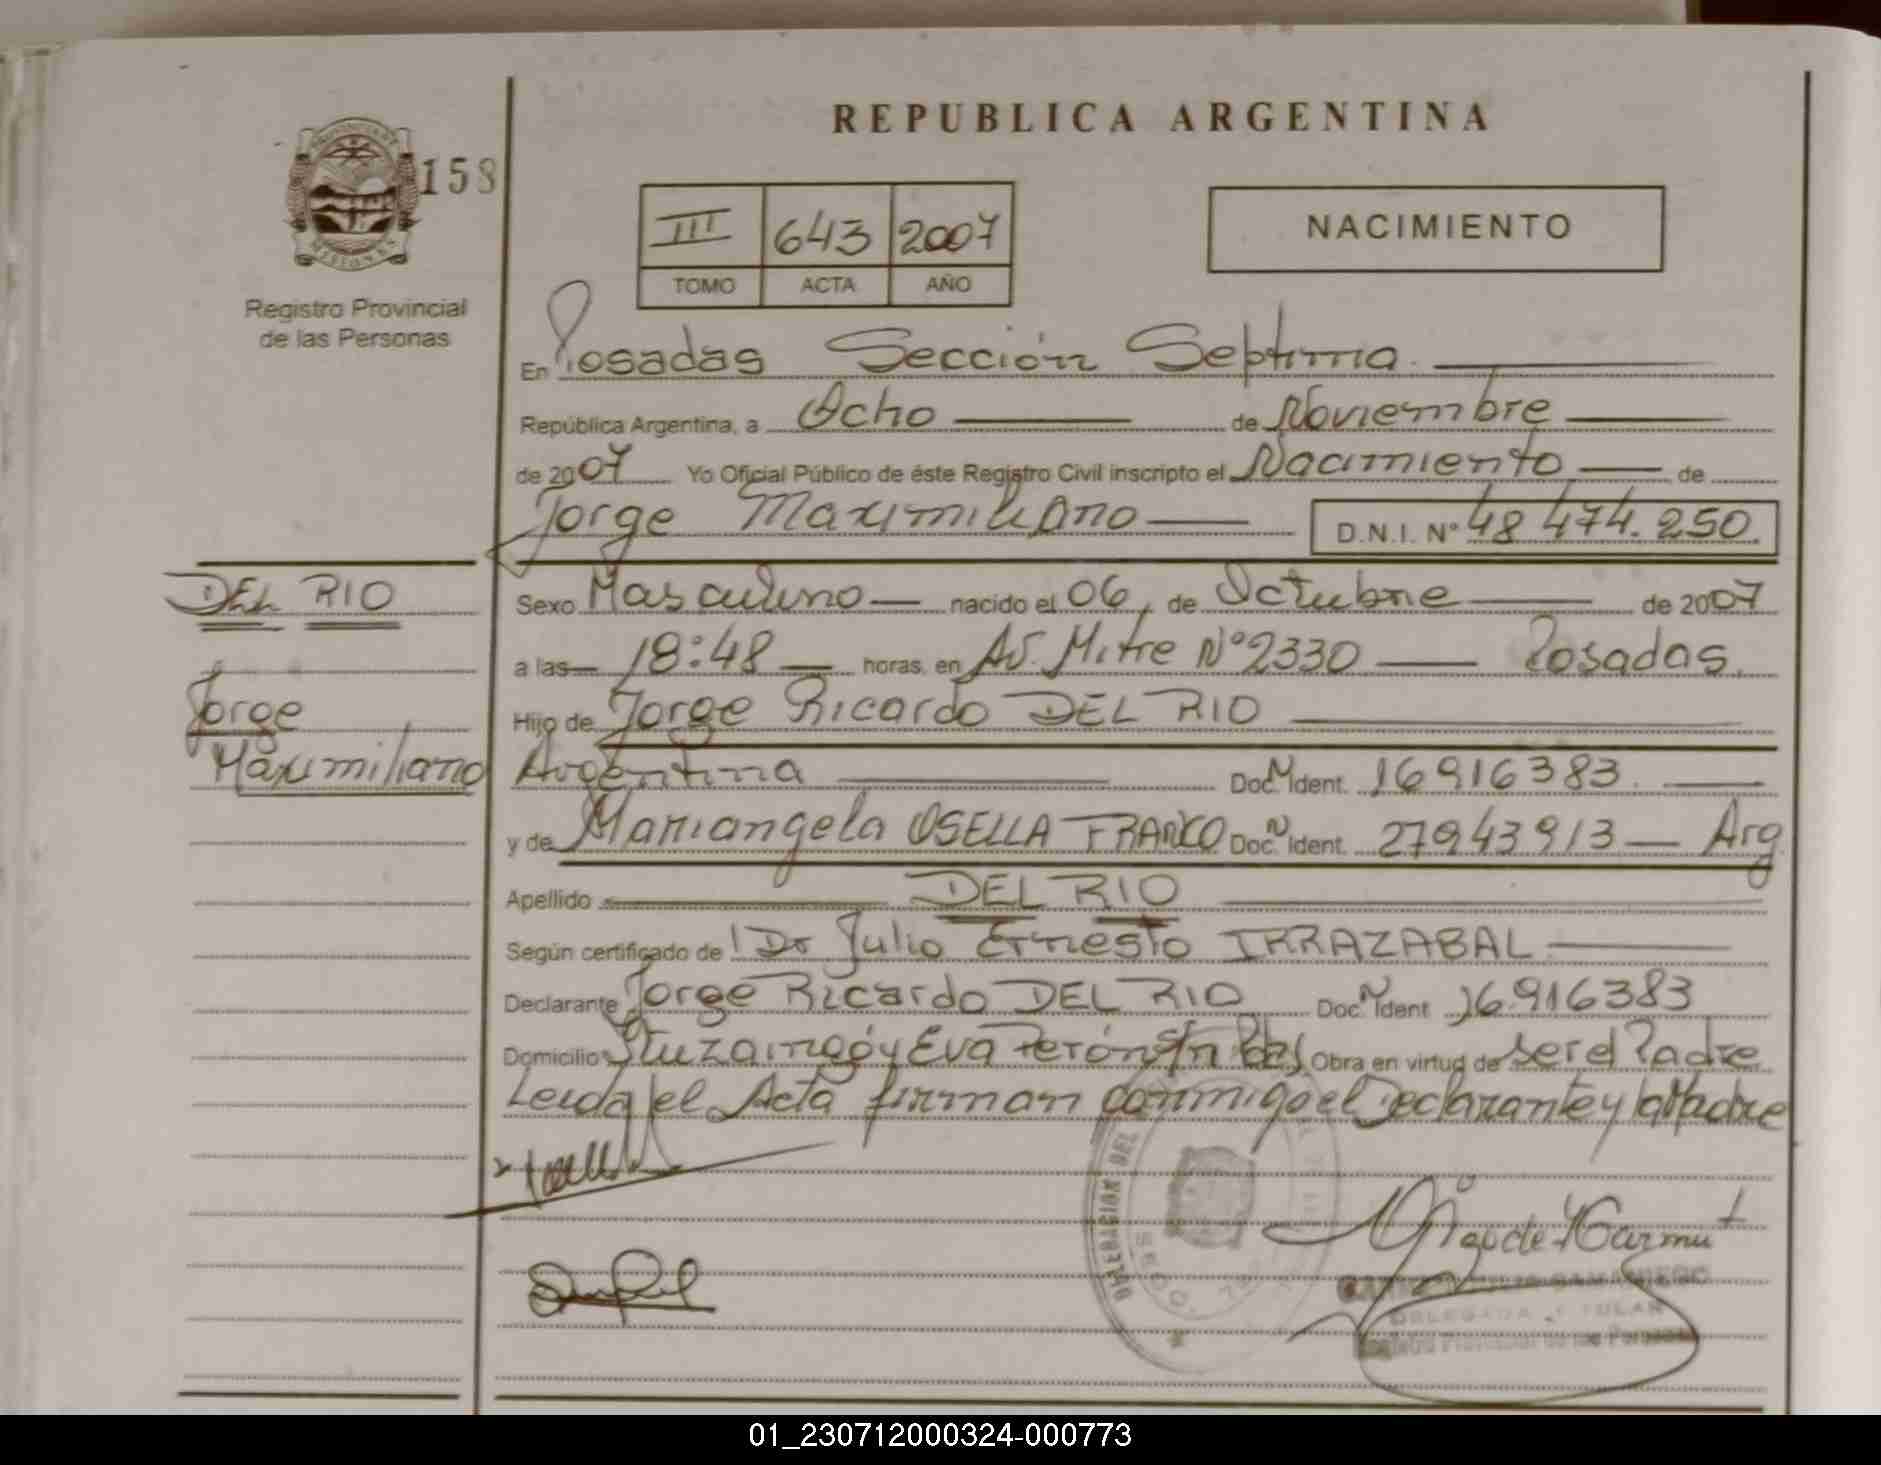 REPUBLICA ARGENTINA
158
MISIONES
Registro Provincial
de las Personas
III 643 2007
TOMO ACTA AÑO
NACIMIENTO
En Posadas Sección Septima
República Argentina, a Ocho de Noviembre
de 2007 Yo Oficial Público de éste Registro Civil inscripto el Nacimiento de
Jorge Maximiliano D.N.I. N° 48 474.250
DEL RIO
Jorge
Maximiliano
Sexo Masculino nacido el 06 de Octubre de 2007
a las 18:48 horas, en Av. Mitre N° 2330 Posadas.
Hijo de Jorge Ricardo DEL RIO
Argentina Doc. N Ident. 16916383
y de Mariangela OSELLA FRANCO Doc. N Ident. 27943913 Arg
Apellido DEL RIO
Según certificado de Dr Julio Ernesto IRRAZABAL
Declarante Jorge Ricardo DEL RIO Doc. N Ident 16.916383
Domicilio Ituzaingó y Eva Perón s/n Pdas Obra en virtud de ser el Padre
Leida el Acta firman conmigo el Declarante y la Madre
DELEGACION DEL
SECC. 7
DELEGADA TITULAR
Registro Provincial de las Personas
01_230712000324-000773